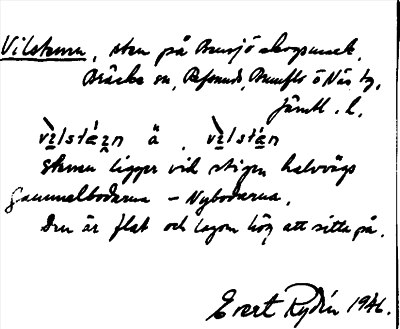 Vilstenen, sten på Bensjö skogsmark,
Bräcke sn, Refsunds, Brunflo o Näs tg,
Jämtl. l.
vɪlstán ä vɪlstán
Stenen ligger vid stigen halvvägs
Gammelbodarna – Nybodarna.
Den är flat och lagom hög att sitta på.
Evert Rydén 1946.